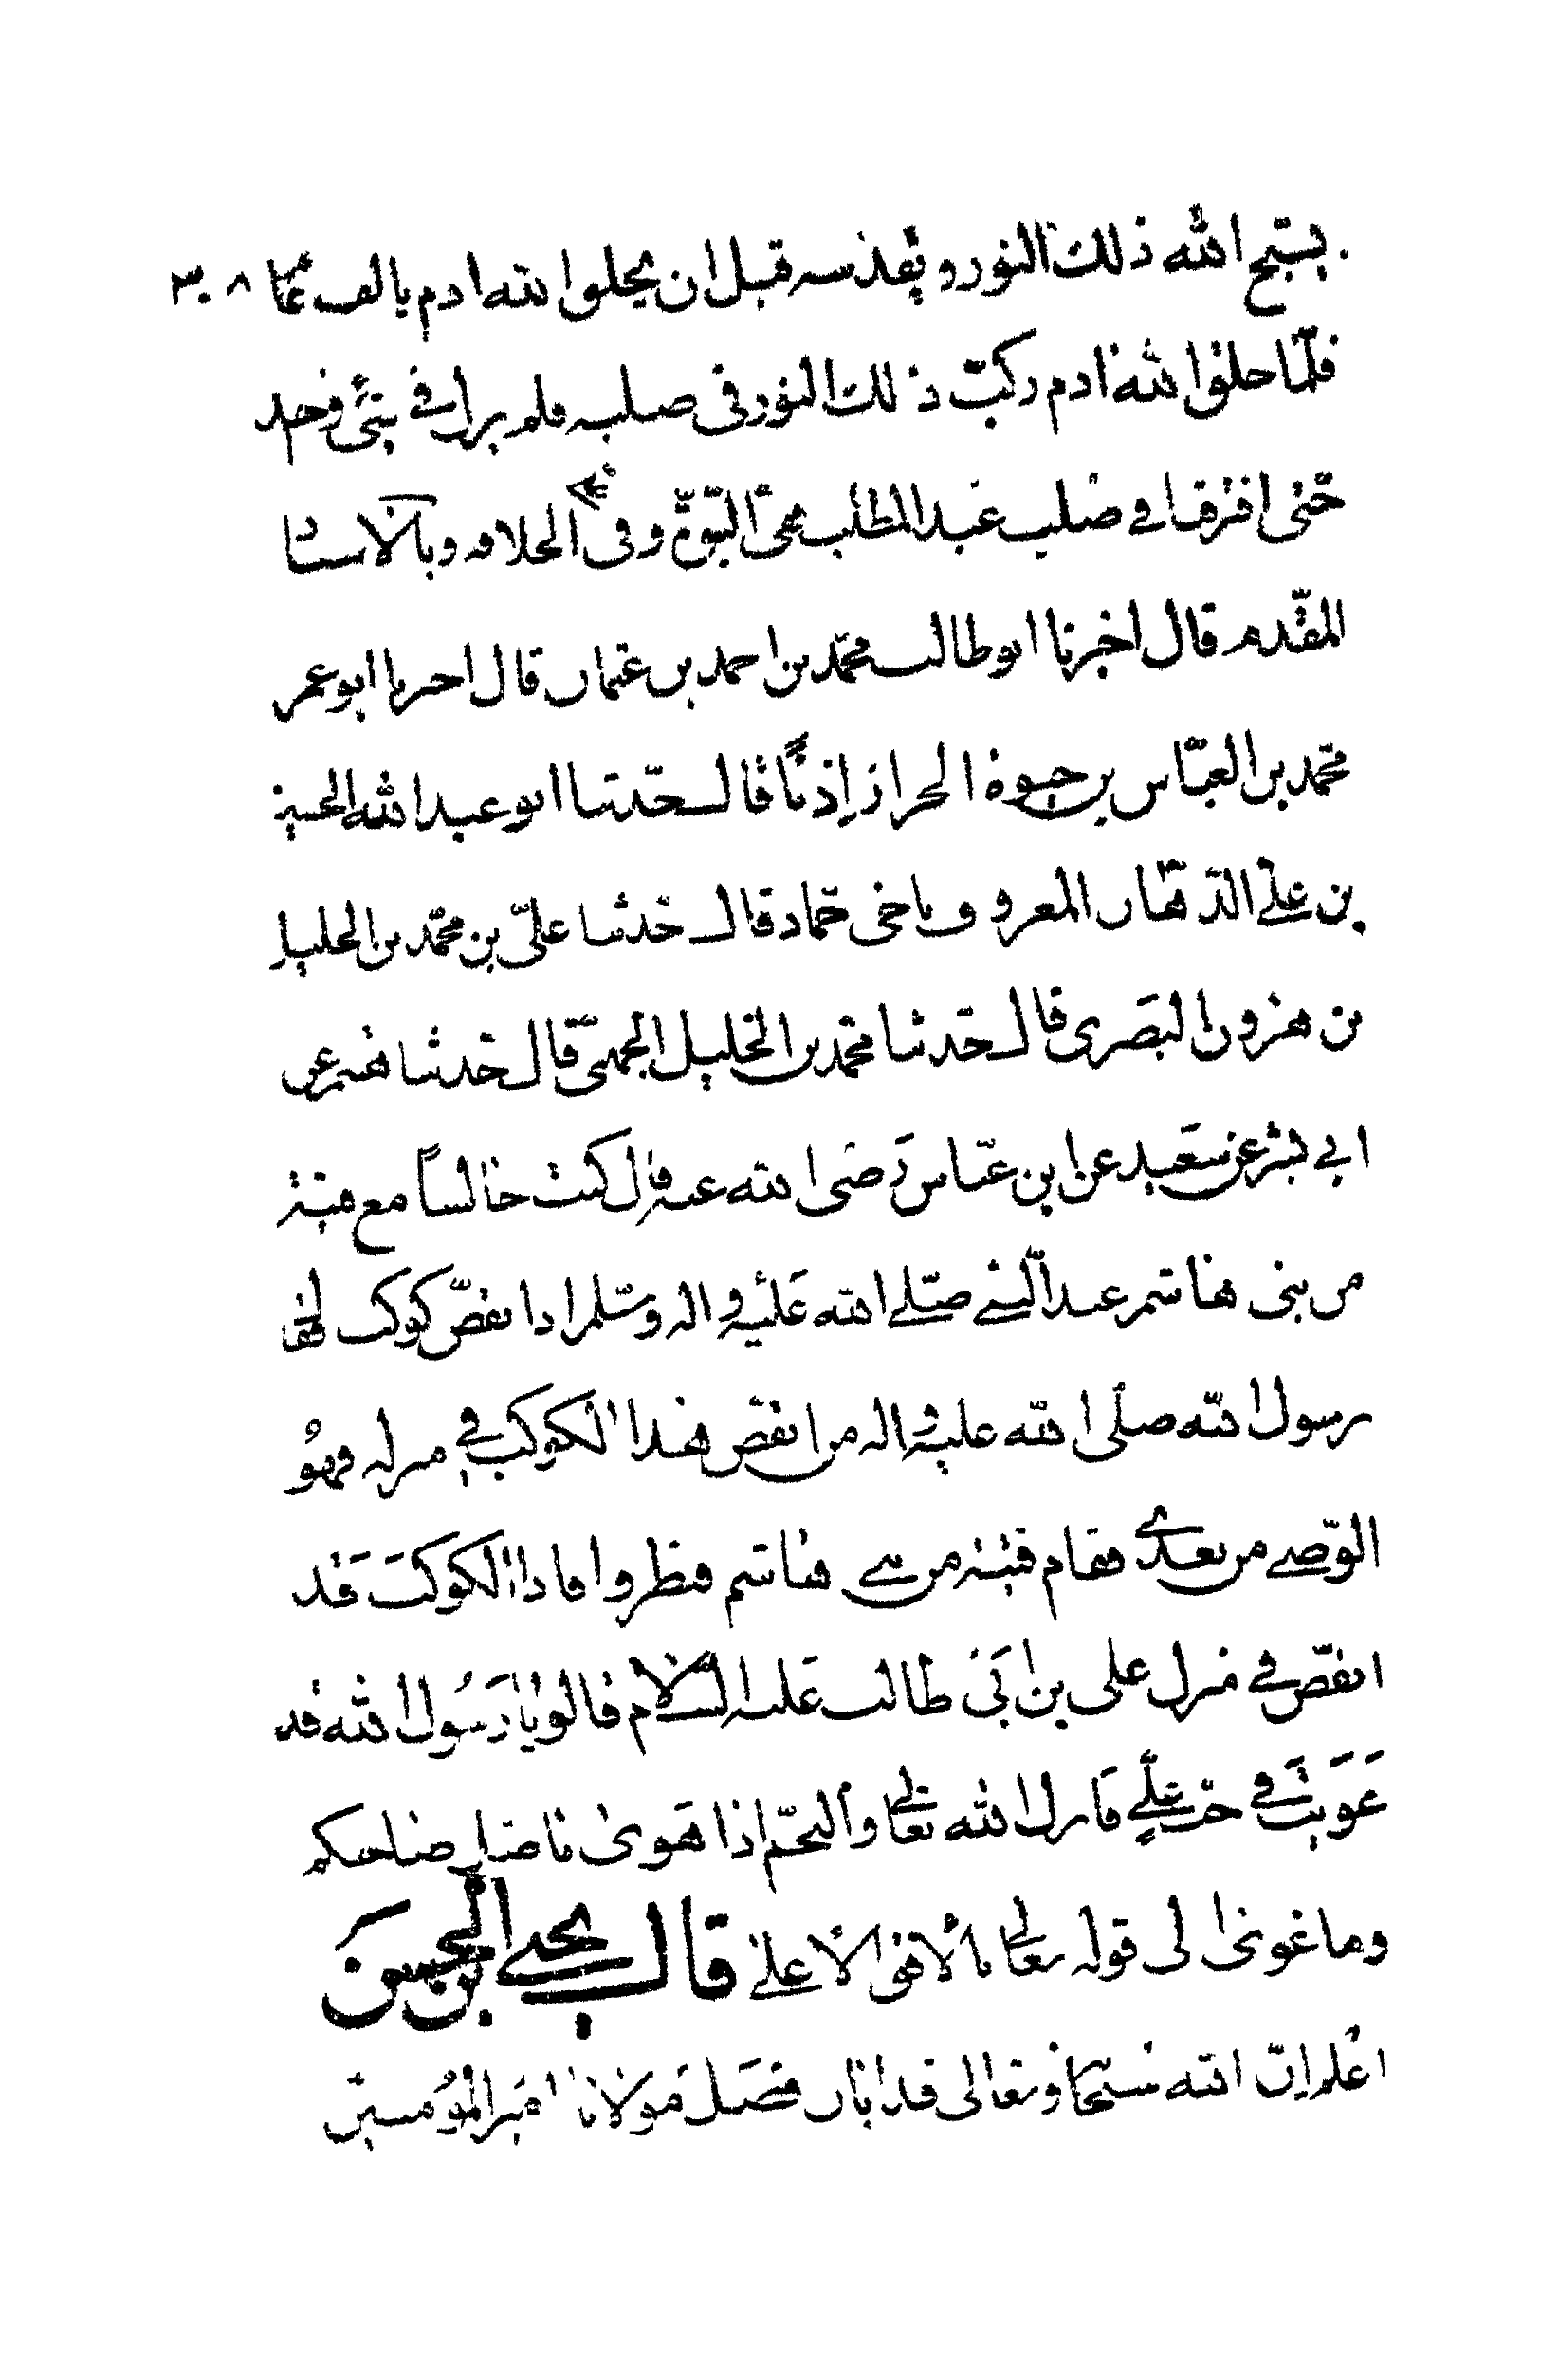 يسبح الله ذلك النور ويقدسه قبل ان يخلق الله ادم بالف عام ٣٠٨
فلما خلق الله ادم ركب ذلك النور في صلبه فلم يزل في شئ واحد
حتى افترقا في صلب عبد المطلب ففي النبوة وفي علي الخلافه وبالاسناد
المقدم قال اخبرنا ابو طالب محمد بن احمد بن عثمان قال اخبرنا ابو عمر
محمد بن العباس بن حيوه الخزاز اذنا قال حدثنا ابو عبد الله الحسين
بن علي الدهان المعروف باخي حماد قال حدثنا علي بن محمد بن الخليل
بن هرون البصري قال حدثنا محمد بن الخليل الجهني قال حدثنا هشيم عن
ابي بشر عن سعيد عن ابن عباس رضى الله عنه قال كنت جالسا مع فتية
من بني هاشم عند النبي صلى الله عليه واله وسلم اذ انقض كوكب فقال
رسول الله صلى الله عليه واله من انقض هذا الكوكب في منزله فهو
الوصي من بعدي فقام فتية من بني هاشم فنظروا فاذا الكوكب قد
انقض في منزل علي بن ابي طالب عليه السلام قالوا يا رسول الله قد
غويت في حب علي فانزل الله تعالى والنجم اذا هوى ما ضل صاحبكم
وما غوى الى قوله تعالى بالافق الاعلى قال يحيى بن الحسن
اعلم ان الله سبحانه وتعالى قد ابان فضل مولانا امير المؤمنين